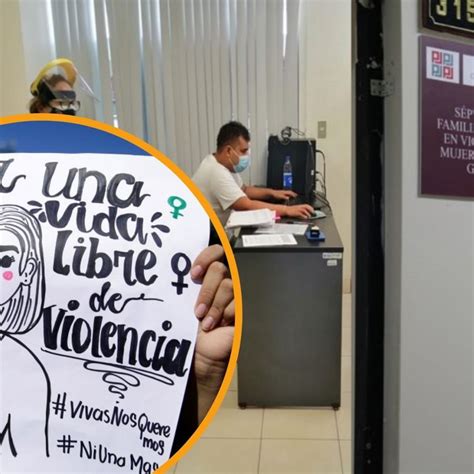 una
vida
libre
de
Violencia
#VivasNosQuere
mos
#NiUnaMas
315
SÉP
FAMIL
EN VI
MUJER
G